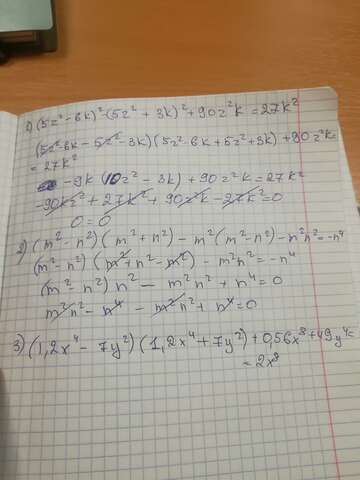 1) (5z² - 6k)² - (5z² + 3k)² + 90z²k = 27k²
(5z² - 6k - 5z² - 3k)(5z² - 6k + 5z² + 3k) + 90z²k
= 27k²
-9k (10z² - 3k) + 90z²k = 27k²
-90kz² + 27k² + 90z²k - 27k² = 0
0 = 0
2) (m² - n²)(m² + n²) - m²(m² - n²) - m²n² = -n⁴
(m² - n²)(m² + n² - m²) - m²n² = -n⁴
(m² - n²) n² - m²n² + n⁴ = 0
m²n² - n⁴ - m²n² + n⁴ = 0
3) (1,2x⁴ - 7y²)(1,2x⁴ + 7y²) + 0,56x⁸ + 49y⁴
= 2x⁸